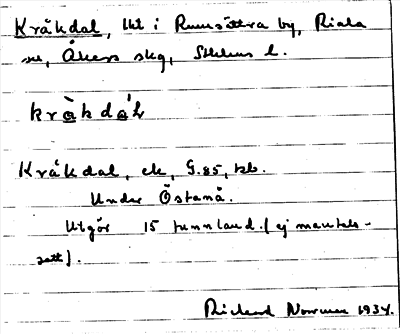 Kråkdal, lht i Rumsättra by, Riala
sn, Åkers skg, Sthlms l.
kràkdá̀L
Kråkdal, ek, G.85, tsb.
Under Östanå.
Utgör 15 tunnland (ej mantals-
satt).
Rickard Norrman 1934.